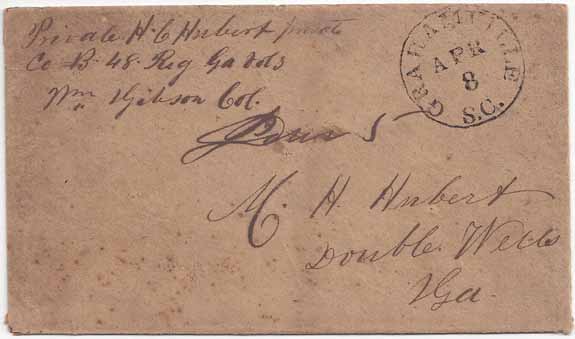 Private H. C. Hubert private
Co B. 48. Reg Ga Vols
Wm Gibson Col.
GRAHAMVILLE
APR
8
S.C.
Paid 5
M. H. Hubert
Double Wells
Ga.